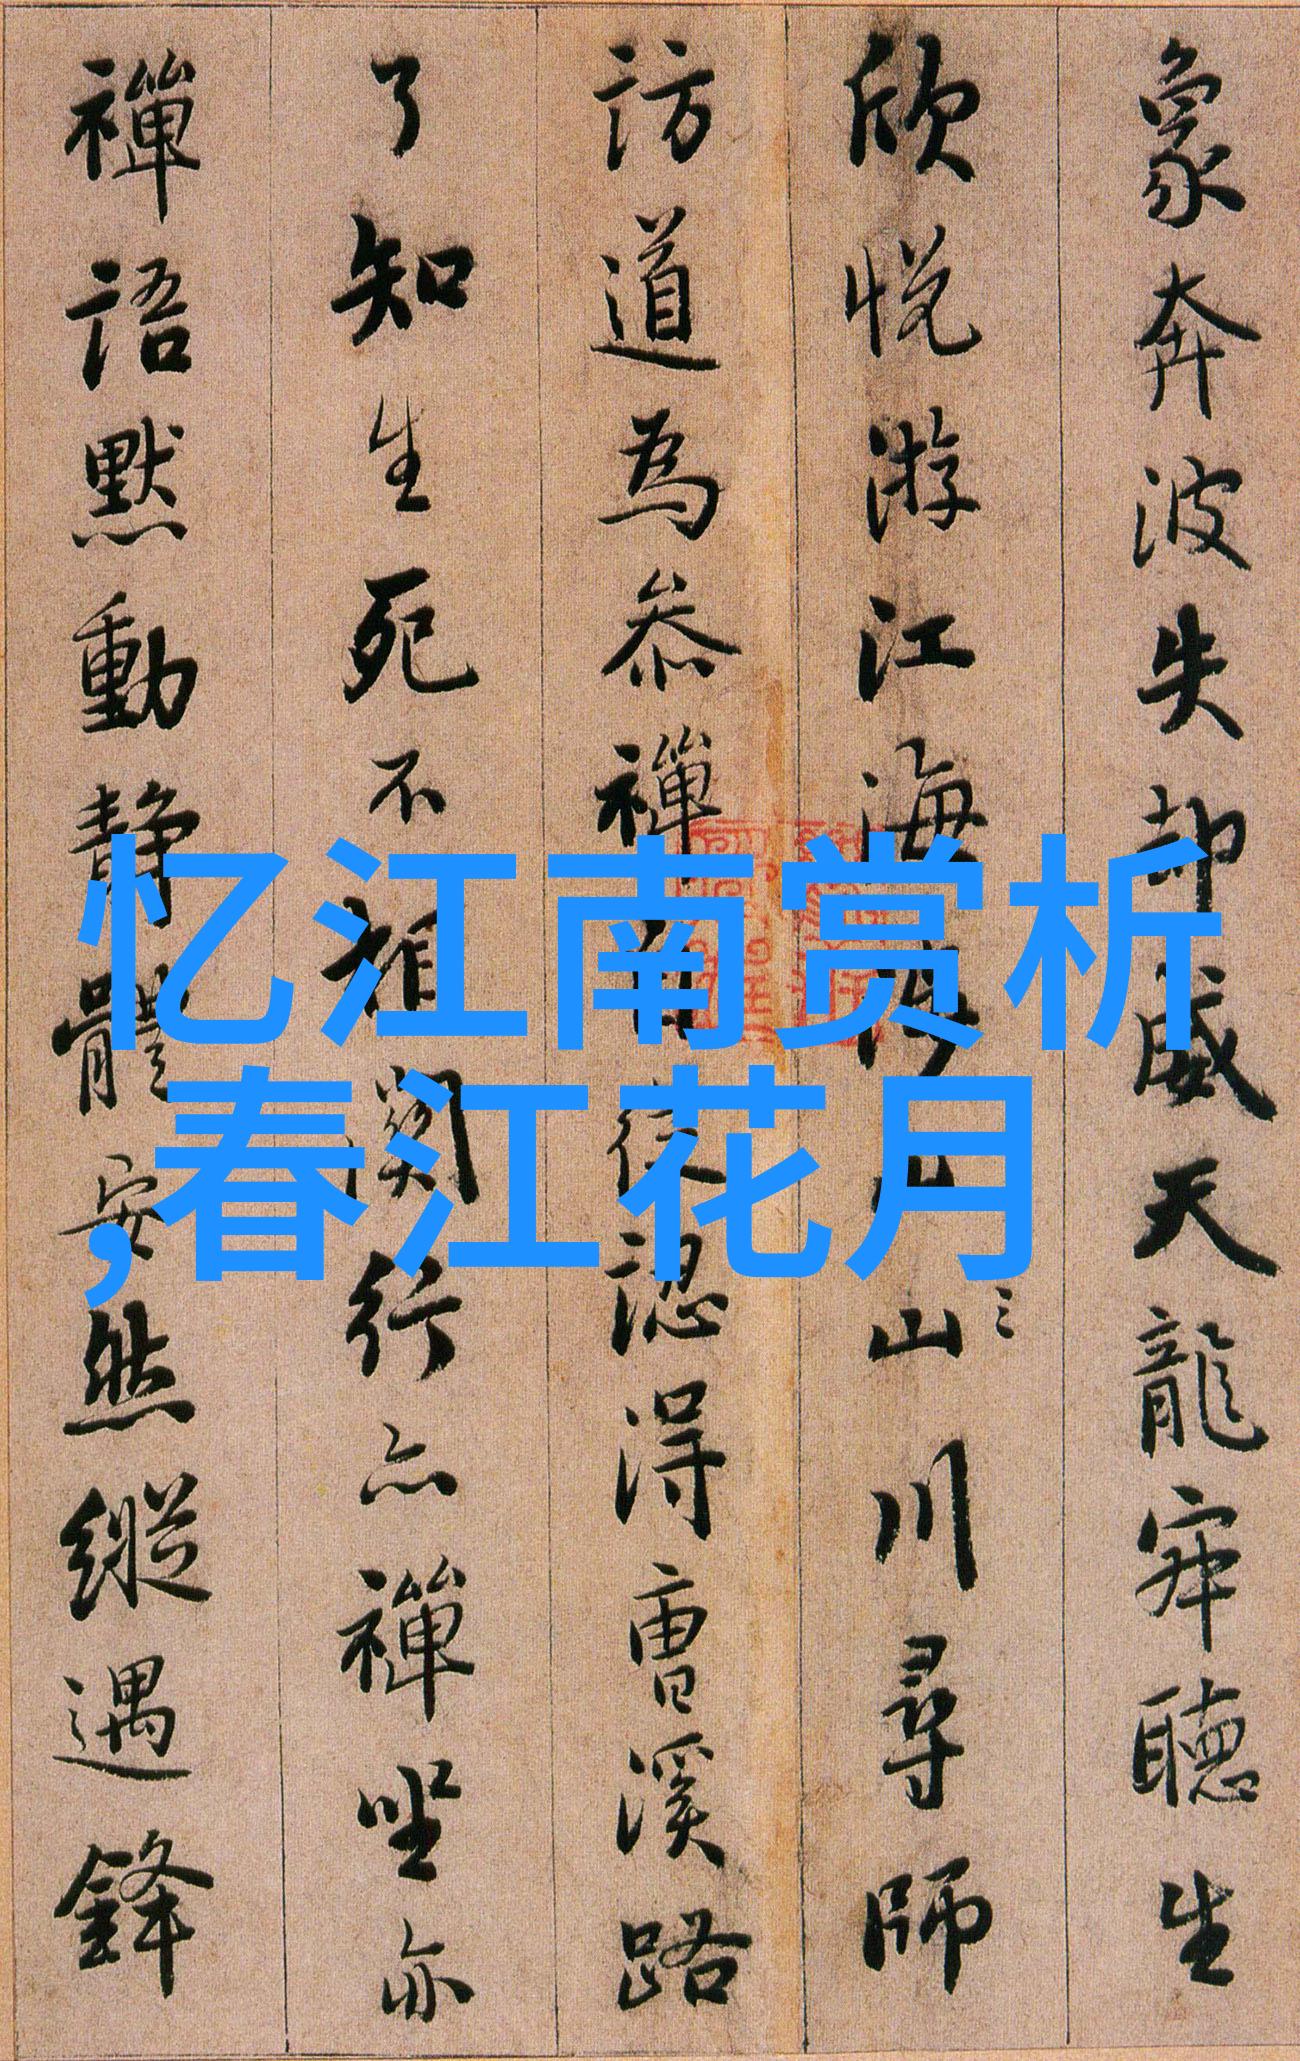 象奔波失却威天龍寂聽生
欣悅游江海山川尋師
訪道為叅禪自從認得曹溪路
了知生死不相關行亦禪坐亦
禪語默動靜體安然縱遇鋒
忆江南赏析
,春江花月